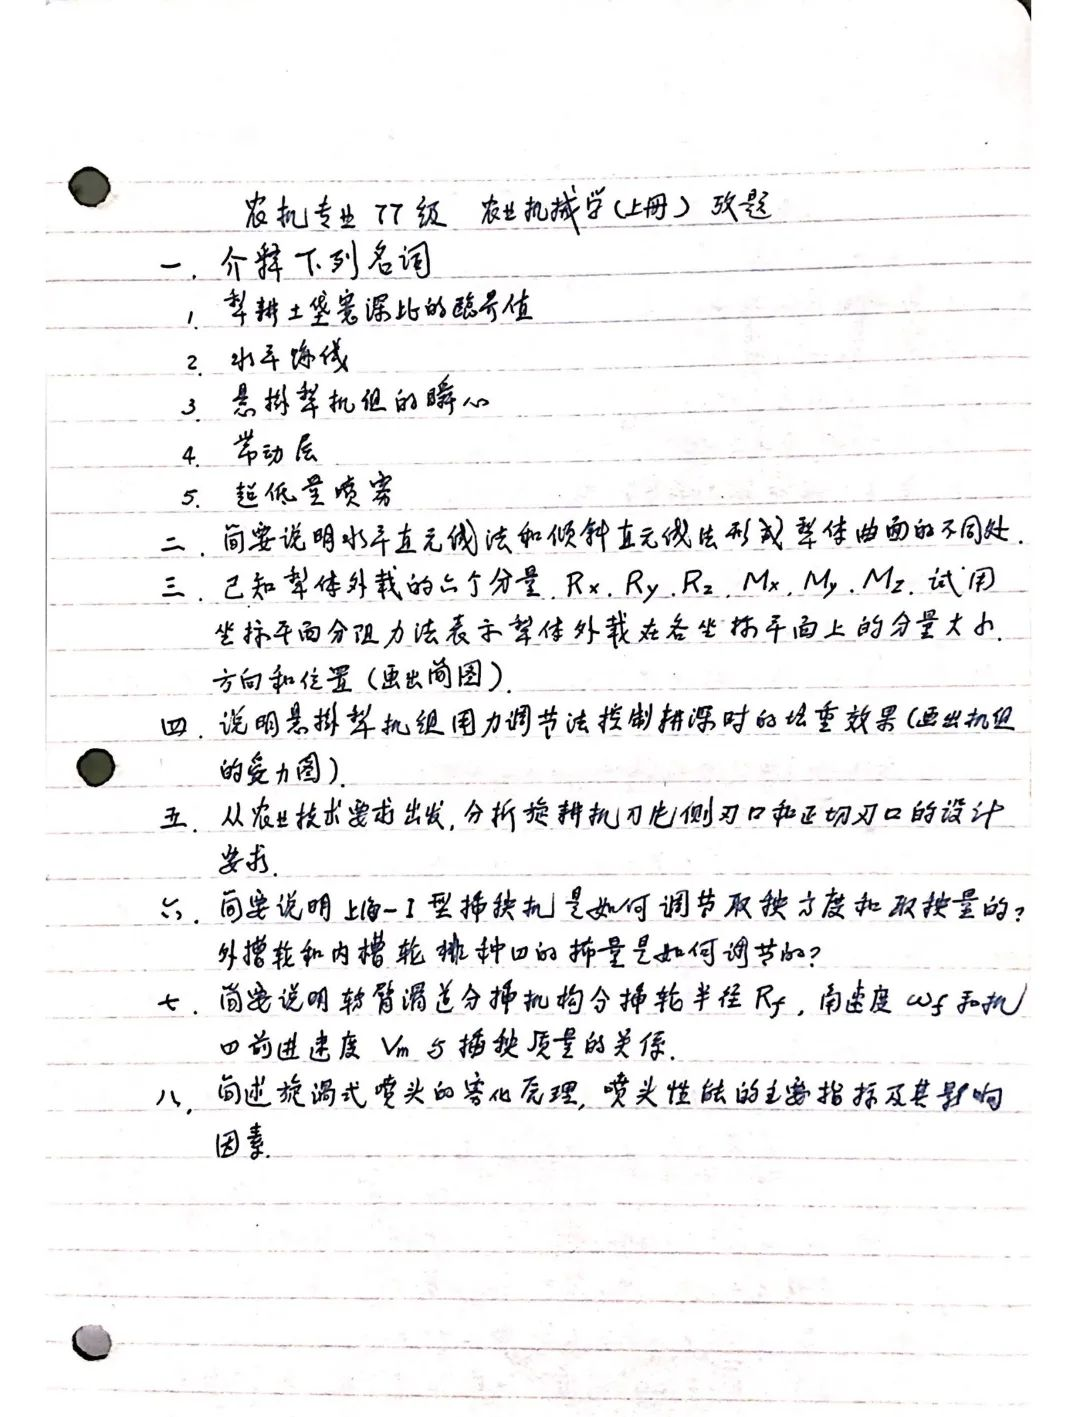 农机专业77级 农业机械学(上册)考题
一. 介释下列名词
1. 犁耕土垡宽深比的临界值
2. 水平跡线
3. 悬掛犁机组的瞬心
4. 带动层
5. 超低量喷雾
二. 简要说明水平直元线法和倾斜直元线法形成犁体曲面的不同处.
三. 已知犁体外载的六个分量. Rx. Ry. Rz. Mx. My. Mz. 试用
坐标平面分阻力法表示犁体外载在各坐标平面上的分量大小.
方向和位置(画出简图).
四. 说明悬掛犁机组用力调节法控制耕深时的增重效果(画出机组
的受力图).
五. 从农业技术要求出发,分析旋耕机刀片侧刃口和正切刃口的设计
要求.
六. 简要说明上海-I型插秧机是如何调节取秧方度和取秧量的?
外槽轮和内槽轮排种口的播量是如何调节的?
七. 简要说明转臂滑道分插机构分插轮半径Rf,角速度ωf和机
口前进速度Vm与插秧质量的关系.
八. 简述旋涡式喷头的雾化原理,喷头性能的主要指标及其影响
因素.